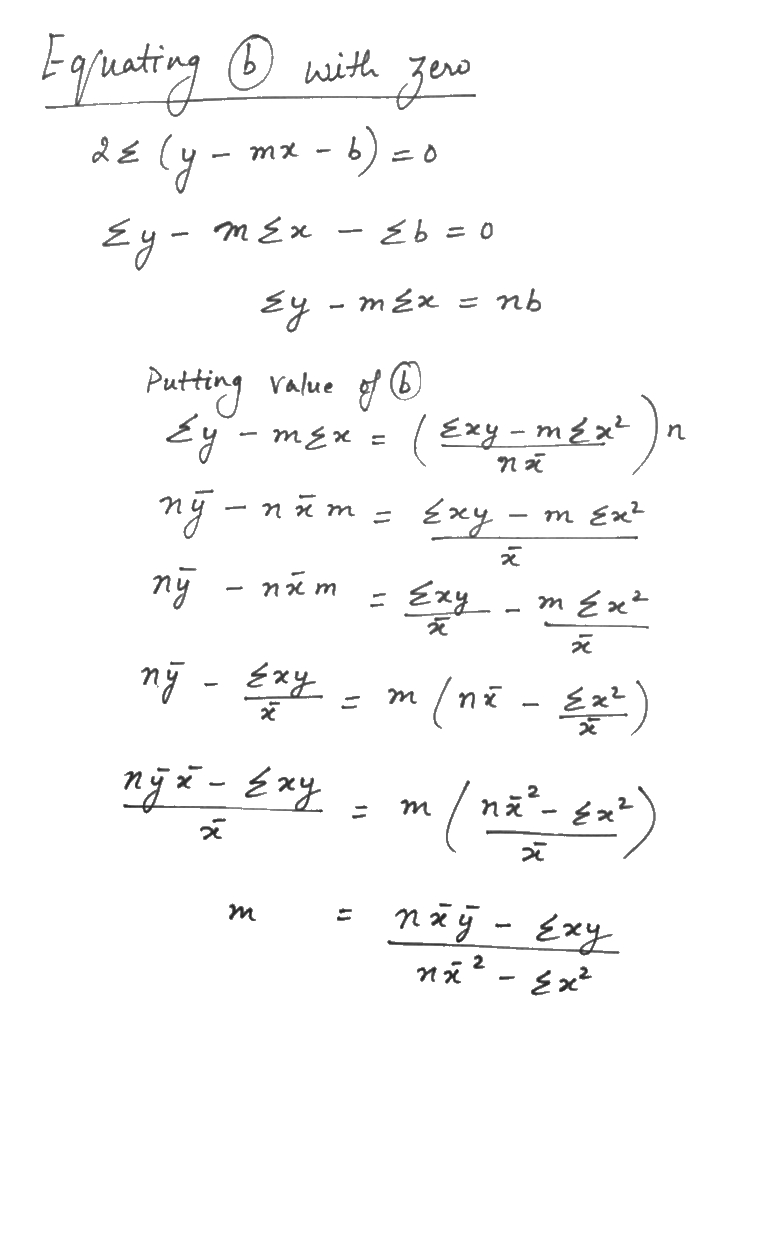 Equating ⓑ with zero
2Σ (y - mx - b) = 0
Σy - mΣx - Σb = 0
Σy - mΣx = nb
Putting value of ⓑ
Σy - mΣx = ( (Σxy - mΣx²) / (n x̄) ) n
nȳ - n x̄ m = (Σxy - m Σx²) / x̄
nȳ - n x̄ m = Σxy / x̄ - m Σx² / x̄
nȳ - Σxy / x̄ = m ( n x̄ - Σx² / x̄ )
(nȳ x̄ - Σxy) / x̄ = m ( (n x̄² - Σx²) / x̄ )
m = (n x̄ ȳ - Σxy) / (n x̄² - Σx²)